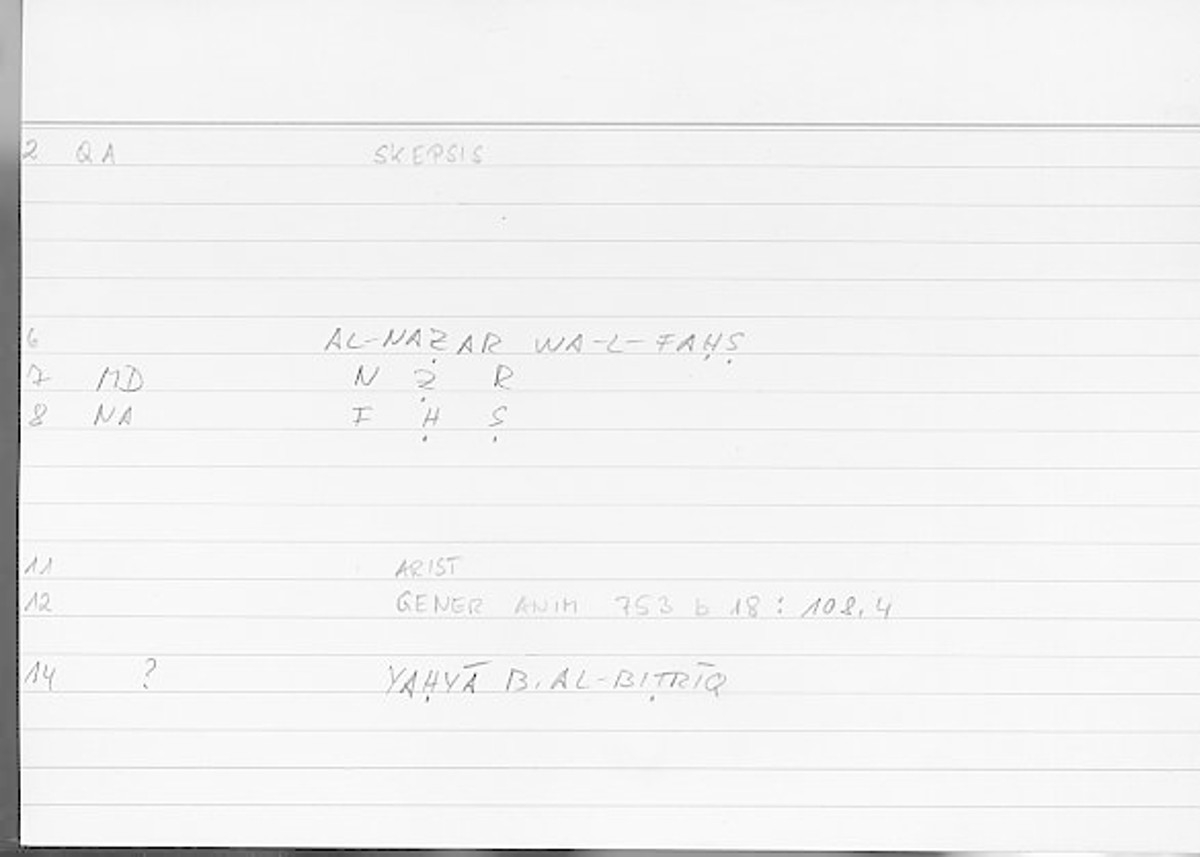 2 QA SKEPSIS
6 AL-NAẒAR WA-L-FAḤṢ
7 MD N Ẓ R
8 NA F Ḥ Ṣ
11 ARIST
12 GENER ANIM 753 b 18 : 108,4
14 ? YAḤYĀ B. AL-BIṬRĪQ